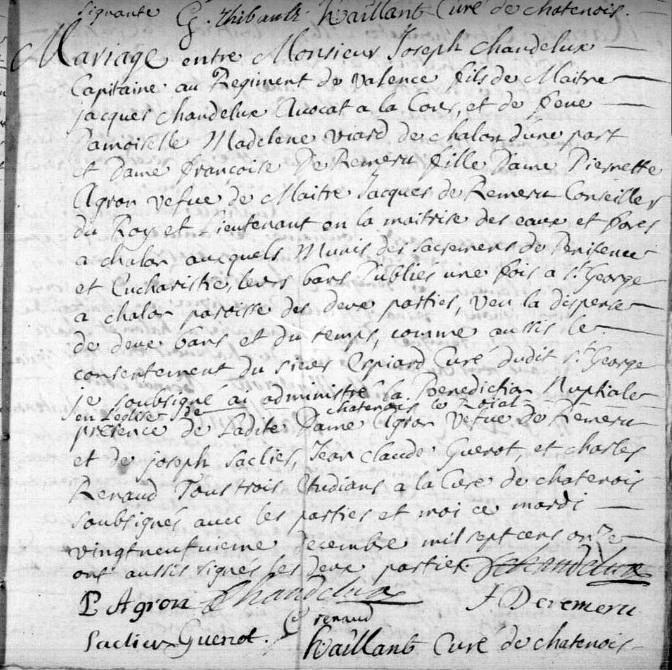 signante G. Thibault Vaillant Curé de chatenois.
Mariage entre Monsieur Joseph Chandelux
Capitaine au Regiment de Valence fils de Maitre
jacques chandelux Avocat a la Cour, et de feue
Damoiselle Madelene viard de chalon d'une part
et Dame francoise De Remeru fille Dame Pierrette
Agron vefue de Maitre Jacques de Remeru Conseiller
du Roy et Lieutenant en la maitrise des eaux et forés
a chalon ausquels Munis des sacremens de Penitence
et Eucharistie leurs bans Publiés une fois a st George
a chalon paroisse des deux parties, veu la dispense
de deux bans et du temps, comme aussi le
consentement du sieur Espiard Curé dudit st George
je soubsigné ai administré la Benediction Nuptiale
en leglise de chatenois le Roial
presence de Ladite Dame Agron vefue de Remeru
et de joseph Saclier, Jean Claude Guenot, et charles
Renaud Tous trois Etudians a la Cure de chatenois
soubsignés avec les parties et moi ce mardi
vingtneufvieme decembre mil sept cens onze
ont aussi signés les deux parties. Chandelux
P. Agron Chandelux F Deremeru
Saclier Guenot. C. renaud
Vaillant Curé de chatenois